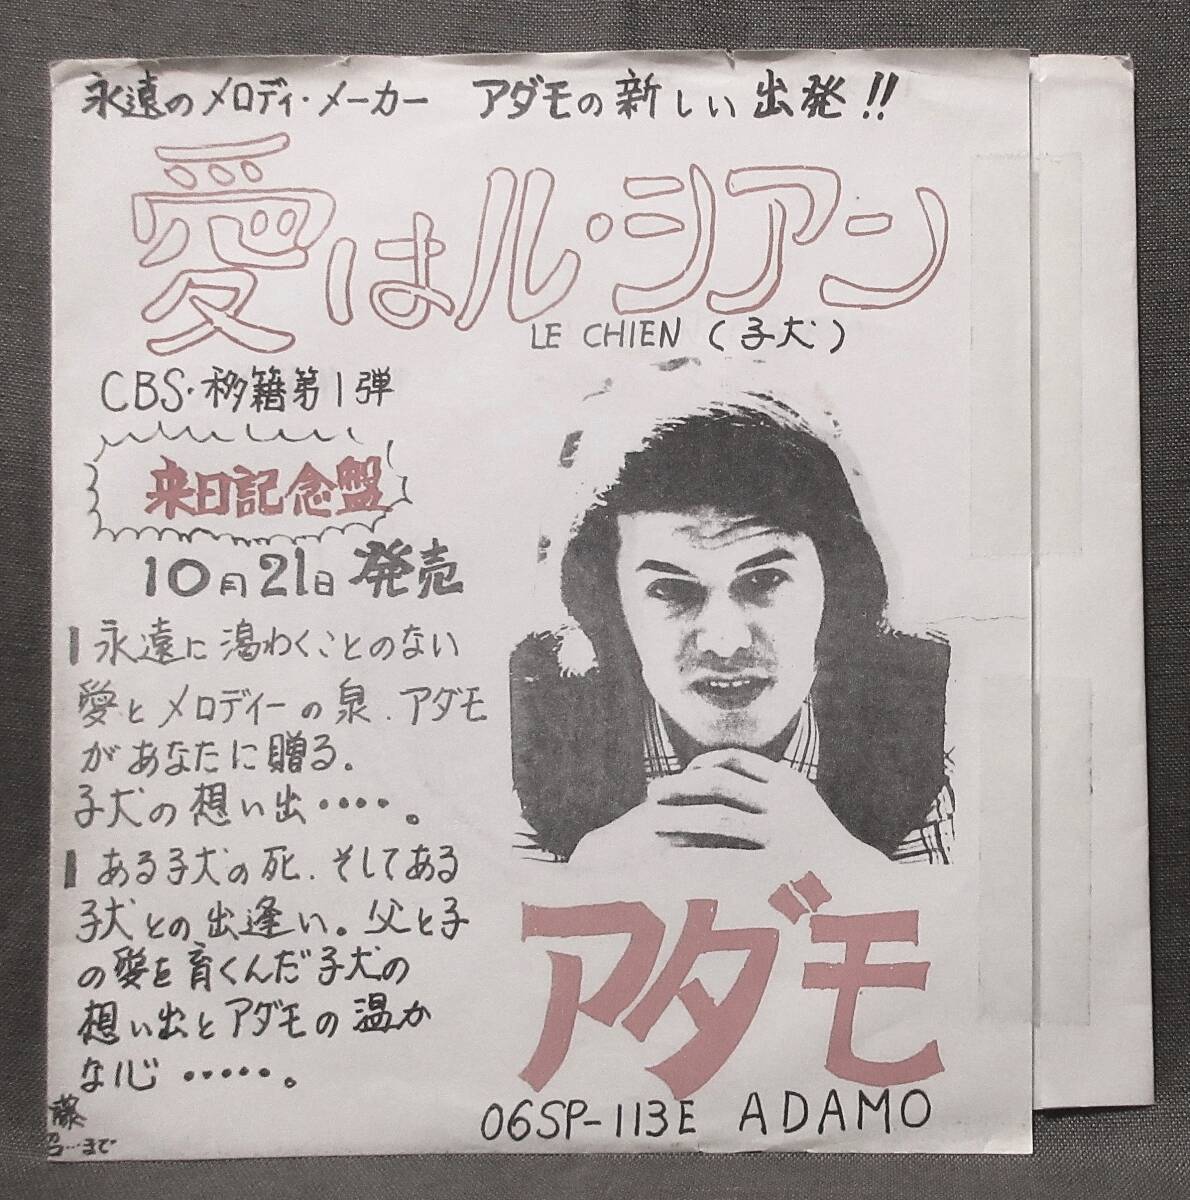 永遠のメロディ・メーカー　アダモの新しい出発!!
愛はル・シアン
LE CHIEN (子犬)
CBS・移籍第1弾
来日記念盤
10月21日発売
永遠に渇わくことのない
愛とメロディーの泉．アダモ
があなたに贈る。
子犬の想い出・・・・。
ある子犬の死．そしてある
子犬との出逢い。父と子
の愛を育くんだ子犬の
想い出とアダモの温か
な心・・・・・。
アダモ
06SP-113E ADAMO
藤
…まで